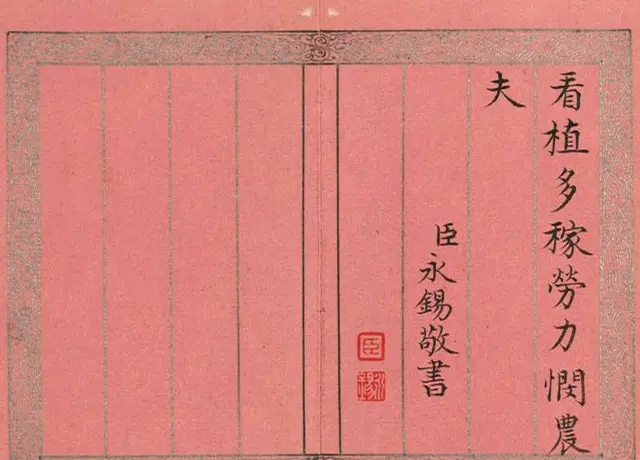 看植多稼勞力憫農
夫
臣永錫敬書
臣
永錫